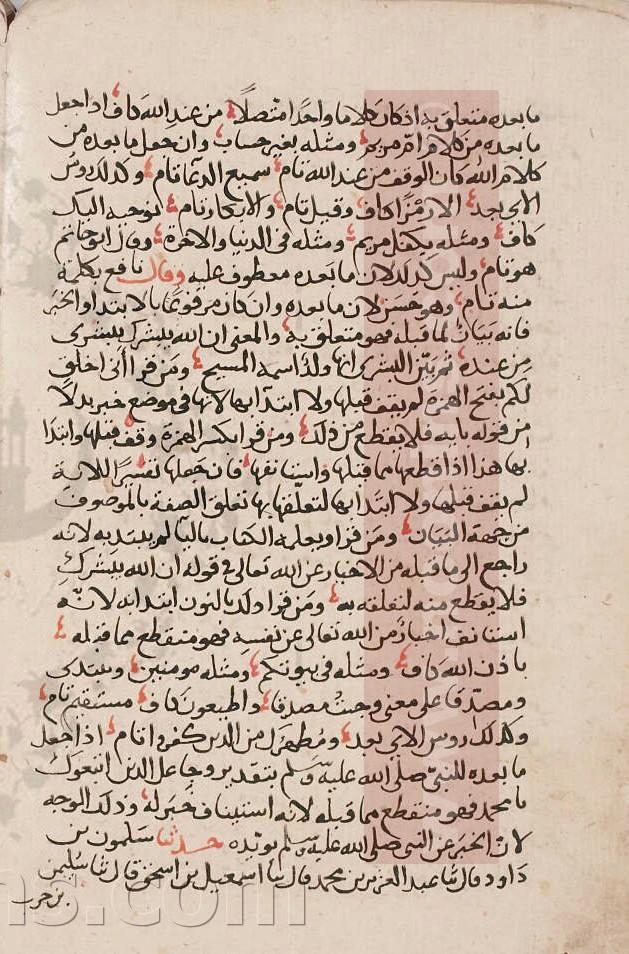 ما بعده متعلق به اذ كان كلاما واحدا متصلا من عند الله كاف اذا جعل
ما بعده من كلام امّ مريم ومثله بغير حساب وان جعل ما بعده من
كلام الله كان الوقف من عند الله تام سميع الدعا تام وكذلك روس
الاى بعد الا رمزا كاف وقيل تام والابكار تام نوحيه اليك
كاف ومثله يكفل مريم ومثله فى الدنيا والاخرة وقال ابو حاتم
هو تام وليس كذلك لان ما بعده معطوف عليه وقال نافع بكلمة
منه تام وهو حسن لان ما بعده وان كان مرفوعا بالابتدا والخبر
فانه بيان لما قبله فهو متعلق به والمعنى ان الله يبشرك ببشرى
من عنده ثم بيّن البشرى انها ولد اسمه المسيح ومن قرا أنى اخلق
لكم بفتح الهمزة لم يقف قبلها ولا ابتدا بها لانها فى موضع خبر بدلا
من قوله باية فلا يقطع من ذلك ومن قرا بكسر الهمزة وقف قبلها وابتدا
بها هذا اذا قطعها مما قبلها واستانفها فان جعلها تفسيرا للاية
لم يقف قبلها ولا ابتدا بها لتعلقها بها تعلق الصفة بالموصوف
من جهة البيان ومن قرا ويعلمه الكتاب باليا لم يبتد به لانه
راجع الى ما قبله من الاخبار عن الله تعالى فى قوله ان الله يبشرك
فلا يقطع منه لتعلقه به ومن قرا ذلك بالنون ابتدا به لانه
استئناف اخبار من الله تعالى عن نفسه فهو منقطع مما قبله
باذن الله كاف ومثله فى بيوتكم ومثله مومنين ويبتدى
ومصدّقا على معنى وجئت مصدقا واطيعون كاف مستقيم تام
وكذلك روس الاى بعد ومطهرك من الذين كفروا تام اذا جعل
ما بعده للنبى صلى الله عليه وسلم بتقدير وجاعل الذين اتبعوك
يا محمد فهو منقطع مما قبله لانه استيناف خبر له وذلك الوجه
لان الخبر عن النبى صلى الله عليه وسلم يويده حدثنا سلمون بن
داود قال ثنا عبد العزيز بن محمد قال ثنا اسمعيل بن اسحق قال ثنا سليمن
بن حرب